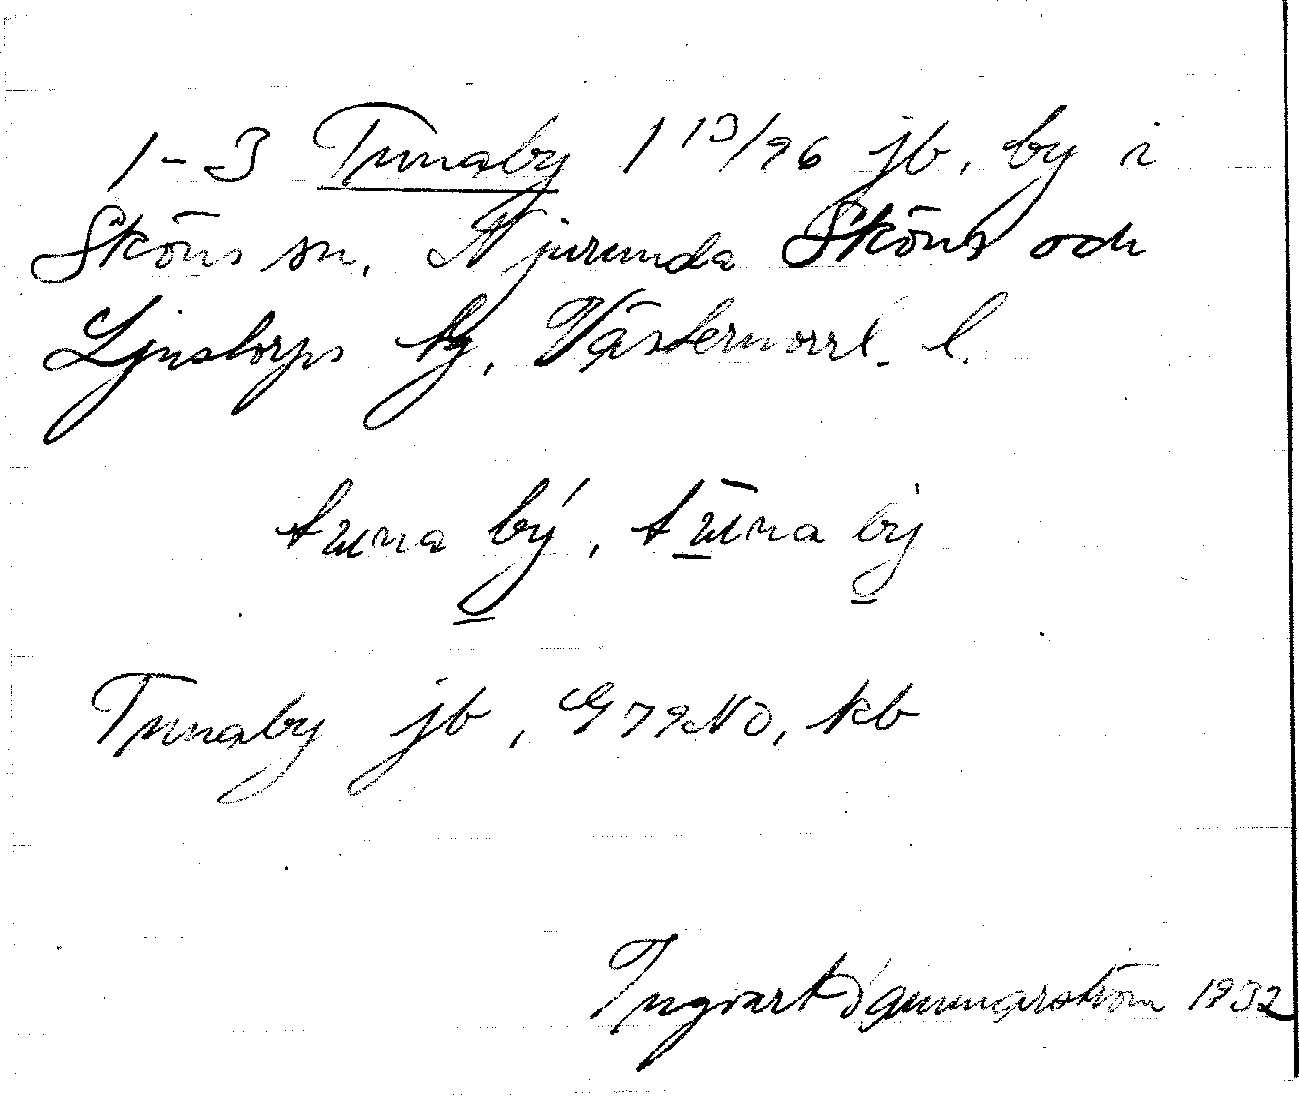 1-3 Tunaby 1 13/96 jb, by i
Sköns sn, Njurunda Sköns och
Ljustorps tg, Västernorrl. l.
tuna by, tuna by
Tunaby jb, G 79NO, kb
1932